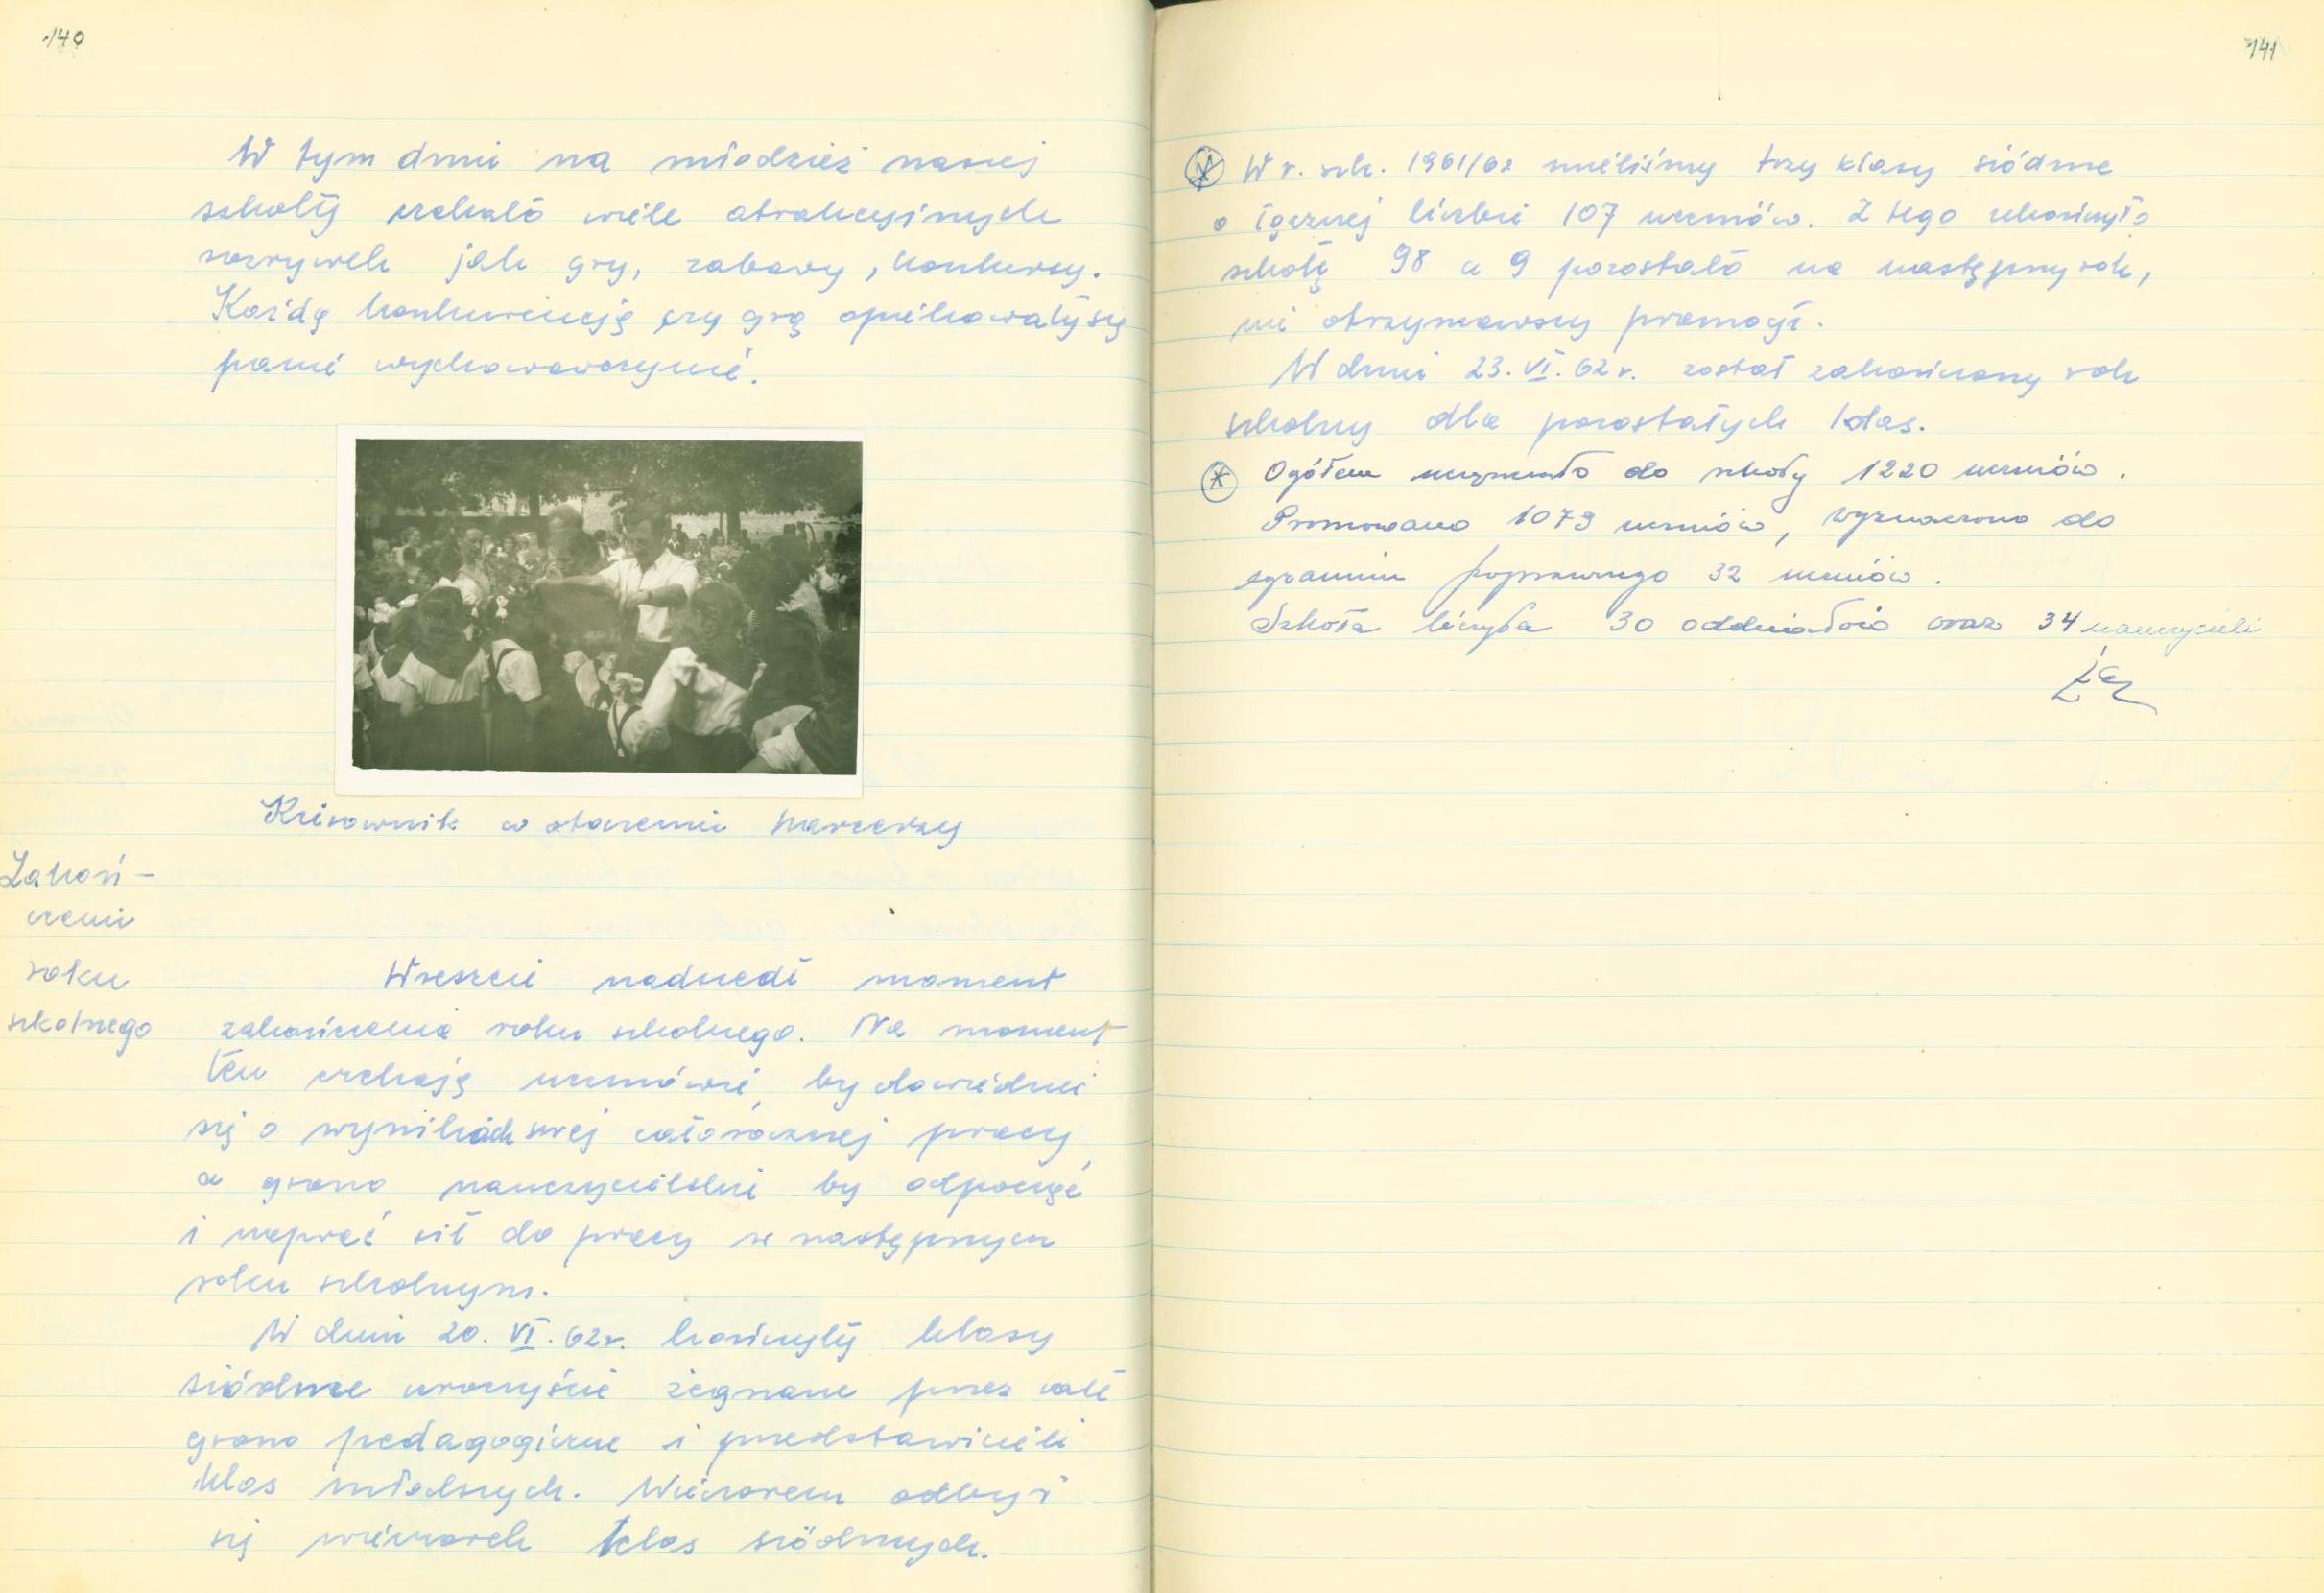 140
W tym dniu na młodzież naszej
szkoły czekało wiele atrakcyjnych
rozrywek jak gry, zabawy, konkursy.
Każdą konkurencją czy grą opiekowały się
panie wychowawczynie.
Kierownik w otoczeniu harcerzy
Zakoń-
czenie
roku
szkolnego
Wreszcie nadszedł moment
zakończenia roku szkolnego. Na moment
ten czekają uczniowie, by dowiedzieć
się o wynikach swej całorocznej pracy,
a grono nauczycielskie by odpocząć
i nabrać sił do pracy w następnym
roku szkolnym.
W dniu 20. VI. 62r. kończyły klasy
siódme uroczyście żegnane przez całe
grono pedagogiczne i przedstawicieli
klas młodszych. Wieczorem odbył
się wieczorek klas siódmych.
141
* W r. szk. 1961/62 mieliśmy trzy klasy siódme
o łącznej liczbie 107 uczniów. Z tego ukończyło
szkołę 98 a 9 pozostało na następny rok,
nie otrzymawszy promocji.
W dniu 23. VI. 62 r. został zakończony rok
szkolny dla pozostałych klas.
* Ogółem uczęszczało do szkoły 1220 uczniów.
Promowano 1079 uczniów, wyznaczono do
egzaminu poprawnego 32 uczniów.
Szkoła liczyła 30 oddziałów oraz 34 nauczycieli